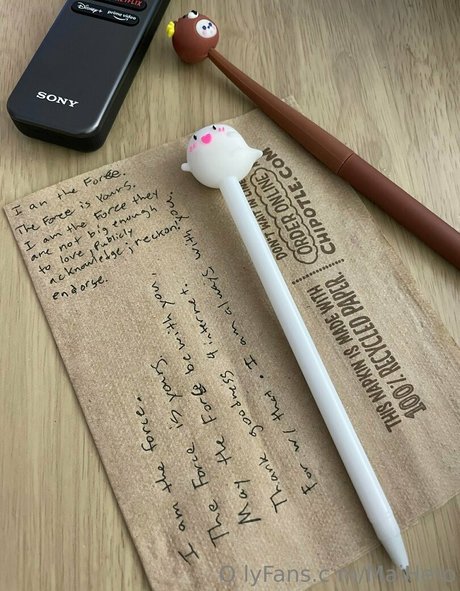 NETFLIX
Disney+
prime video
SONY
I am the Force.
The Force is Yours.
I am the Force they
are not big enough
to love publicly
acknowledge, reckon,
endorse.
I am the force.
The Force is yours
May the Force be with you.
Thank goodness 4 internet.
For w/ that. I am always with you.
DON'T WAIT IN LINE
ORDER ONLINE
CHIPOTLE.COM
THIS NAPKIN IS MADE WITH
100% RECYCLED PAPER.